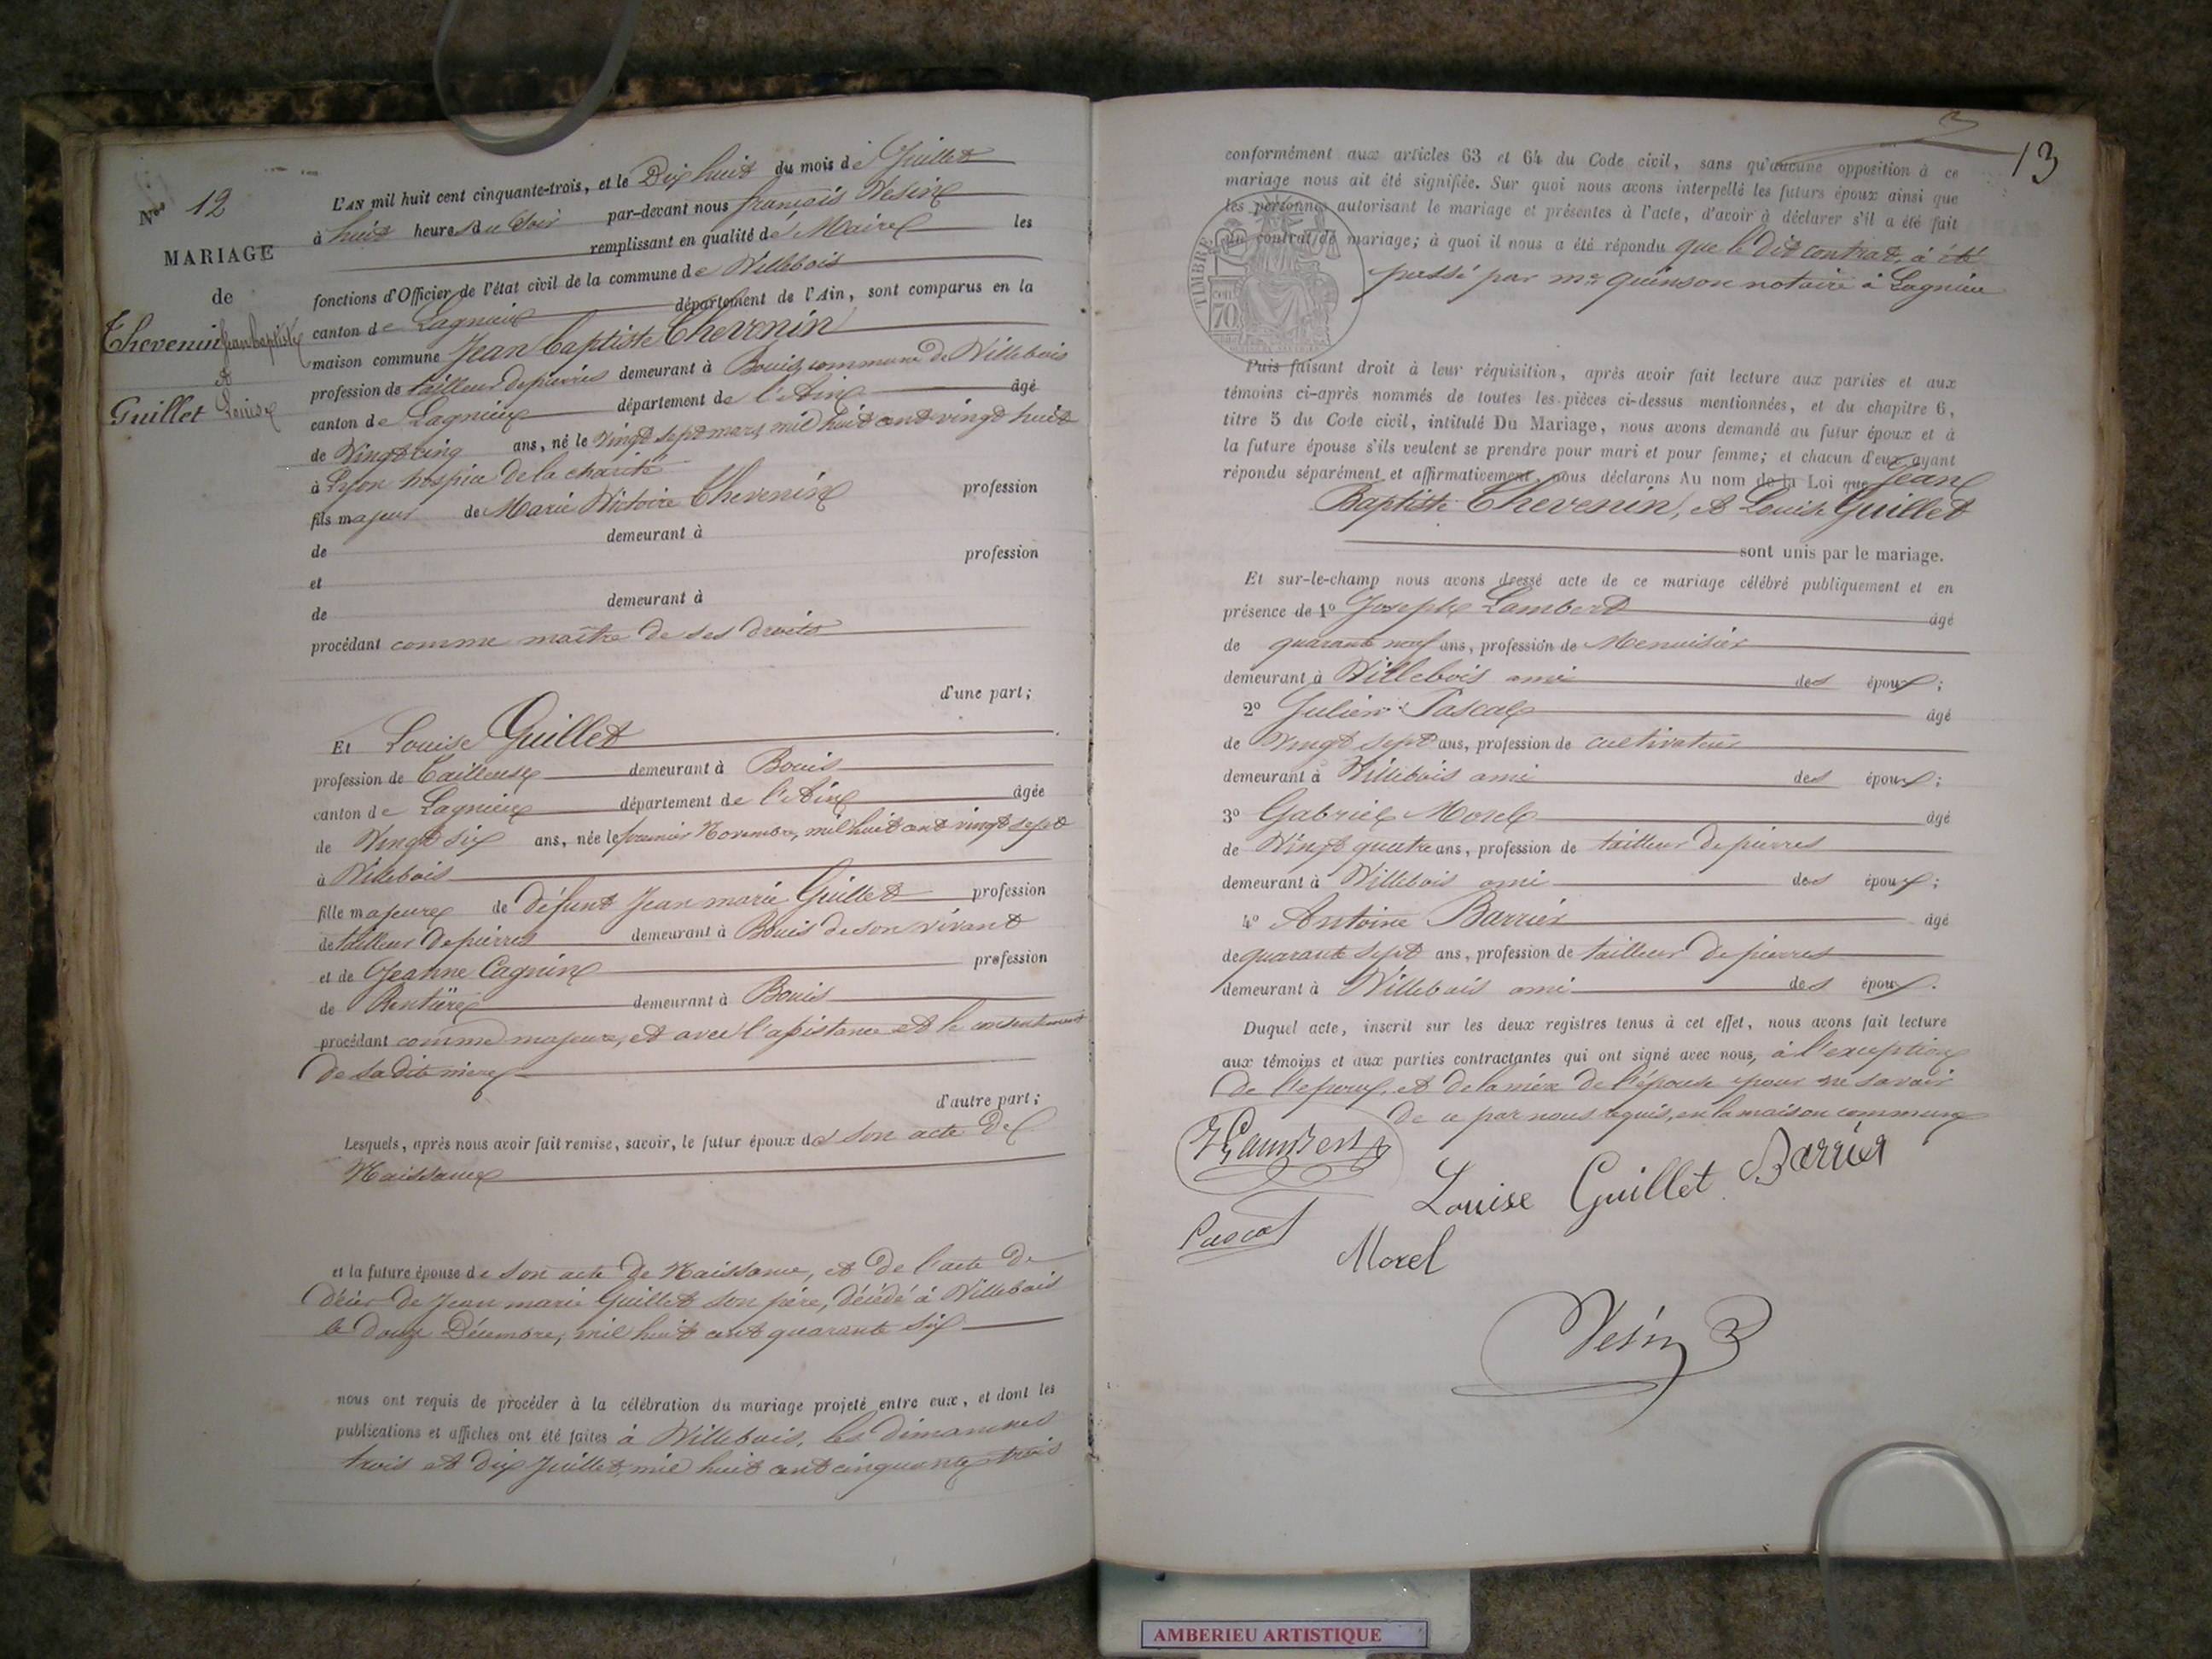 Nos 12
MARIAGE
de
Thevenin Jean baptiste
et
Guillet Louise
L'AN mil huit cent cinquante-trois, et le Dix huit du mois de Juillet
à huit heures du Soir par-devant nous françois Vesin
remplissant en qualité de Maire les
fonctions d'Officier de l'état civil de la commune de Villebois
canton de Lagnieu département de l'Ain, sont comparus en la
maison commune Jean baptiste Thevenin
profession de tailleur de pierres demeurant à Bouis, commune de Villebois
canton de Lagnieu département de l'Ain âgé
de Vingt cinq ans, né le Vingt sept mars mil huit cent vingt huit
à Lyon hospice de la charité
fils majeur de Marie Victoire Thevenin profession
de demeurant à
et profession
de demeurant à
procédant comme maître de ses droits
d'une part;
Et Louise Guillet
profession de Tailleuse demeurant à Bouis
canton de Lagnieu département de l'Ain âgée
de Vingt six ans, née le premier Novembre, mil huit cent vingt sept
à Villebois
fille majeure de défunt Jean marie Guillet profession
de tailleur de pierres demeurant à Bouis de son vivant
et de Jeanne Cagnin profession
de Rentière demeurant à Bouis
procédant comme majeure, et avec l'assistance et le consentement
de sadite mère
d'autre part;
Lesquels, après nous avoir fait remise, savoir, le futur époux de son acte de
Naissance
et la future épouse de son acte de Naissance, et de l'acte de
décès de Jean marie Guillet son père, décédé à Villebois
le douze Décembre, mil huit cent quarante six
nous ont requis de procéder à la célébration du mariage projeté entre eux, et dont les
publications et affiches ont été faites à Villebois, les dimanches
trois et dix Juillet, mil huit cent cinquante trois
13
conformément aux articles 63 et 64 du Code civil, sans qu'aucune opposition à ce
mariage nous ait été signifiée. Sur quoi nous avons interpellé les futurs époux ainsi que
les personnes autorisant le mariage et présentes à l'acte, d'avoir à déclarer s'il a été fait
un contrat de mariage; à quoi il nous a été répondu que le dit contrat, à été
passé par me quinson notaire à Lagnieu
TIMBRE
70
Puis faisant droit à leur réquisition, après avoir fait lecture aux parties et aux
témoins ci-après nommés de toutes les pièces ci-dessus mentionnées, et du chapitre 6,
titre 5 du Code civil, intitulé Du Mariage, nous avons demandé au futur époux et à
la future épouse s'ils veulent se prendre pour mari et pour femme; et chacun d'eux ayant
répondu séparément et affirmativement, nous déclarons Au nom de la Loi que Jean
Baptiste Thevenin, et Louise Guillet
sont unis par le mariage.
Et sur-le-champ nous avons dressé acte de ce mariage célébré publiquement et en
présence de 1º Joseph Lambert âgé
de quarante neuf ans, profession de Menuisier
demeurant à Villebois ami des époux;
2º Julien Pascal âgé
de Vingt sept ans, profession de cultivateur
demeurant à Villebois ami des époux;
3º Gabriel Morel âgé
de Vingt quatre ans, profession de tailleur de pierres
demeurant à Villebois ami des époux;
4º Antoine Barrier âgé
de quarante sept ans, profession de tailleur de pierres
demeurant à Villebois ami des époux.
Duquel acte, inscrit sur les deux registres tenus à cet effet, nous avons fait lecture
aux témoins et aux parties contractantes qui ont signé avec nous, à l'exception
de l'epoux, et de la mère de l'épouse pour ne savoir
de ce par nous requis, en la maison commune
Lambert
Louise Guillet Barrier
Pascal
Morel
Vesin
AMBERIEU ARTISTIQUE